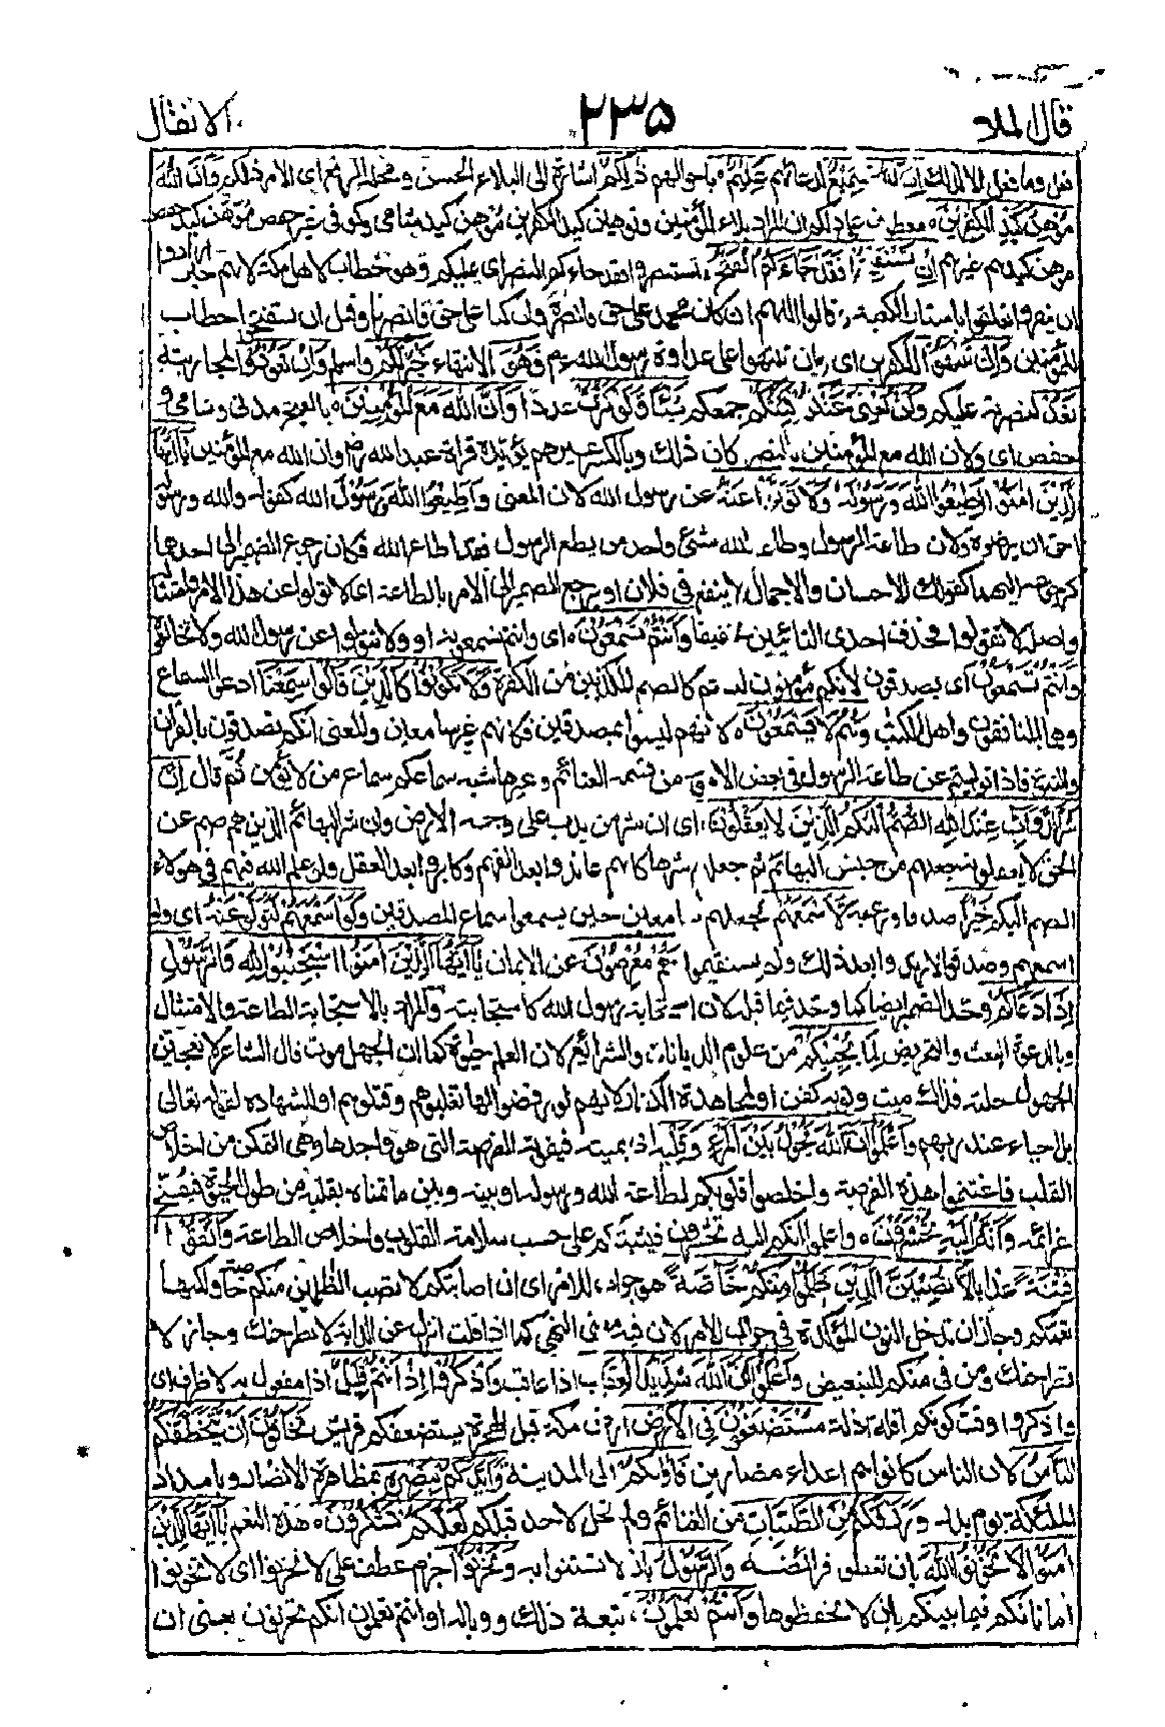 قال الملا ٢٣٥ الانفال
فعل وما فعل الا لذلك إن الله سميع لدعائهم عليم باحوالهم ذلكم اشارة الى البلاء الحسن ومحله الرفع اى الامر ذلكم وأن الله
موهن كيد الكفرين معطوف على ذلكم اى المراد بلاء المؤمنين وتوهين كيد الكفرين موهن كيد شامى وكوفى غير حفص موهن كيد حفص
موهن كيدهم غيرهم إن تستفتحوا فقد جاءكم الفتح ان تستنصروا فقد جاءكم النصر اى عليكم وهو خطاب لاهل مكة لانهم حين ارادوا
ان ينفروا تعلقوا باستار الكعبة وقالوا اللهم ان كان محمد على حق فانصره وان كنا على حق فانصرنا وقيل ان تستفتحوا خطاب
للمؤمنين وإن تنتهوا للكفرين اى وان تنتهوا عن عداوة رسول الله عم فهو الانتهاء خير لكم واسلم وإن تعودوا لمحاربته
نعد لنصرته عليكم ولن تغنى عنكم فئتكم جمعكم شيئا ولو كثرت عددا وأن الله مع المؤمنين بالفتح مدنى وشامى و
حفص اى ولان الله مع المؤمنين بالنصر كان ذلك وبالكسر غيرهم يؤيده قراءة عبد الله رض وان الله مع المؤمنين يأيها
الذين امنوا أطيعوا الله ورسوله ولا تولوا عنه عن رسول الله لان المعنى وأطيعوا الله ورسول الله كقوله والله ورسوله
احق ان يرضوه ولان طاعة الرسول وطاعة الله شئ واحد من يطع الرسول فقد اطاع الله فكان رجوع الضمير الى احدهما
كرجوعه اليهما كقولك الاحسان والاجمال لا ينفع فى فلان او يرجع الضمير الى الامر بالطاعة اى لا تولوا عن هذا الامر وامتثاله
واصله لا تتولوا فحذف احدى التائين تخفيفا وأنتم تسمعون اى وانتم تسمعونه او ولا تتولوا عن رسول الله ولا تخالفوه
وأنتم تسمعون اى يصدقون لانكم مؤمنون لستم كالصم المكذبين من الكفرة ولا تكونوا كالذين قالوا سمعنا اى ادعوا السماع
وهم المنافقون واهل الكتب وهم لا يسمعون لانهم ليسوا بمصدقين فكانهم غير سامعين والمعنى انكم تصدقون بالقران
والنبوة فاذا توليتم عن طاعة الرسول فى بعض الامور من قسمة الغنائم وغيرها اشبه سماعكم سماع من لا يؤمن ثم قال إن
شر الدواب عند الله الصم البكم الذين لا يعقلون اى ان شر من يدب على وجه الارض وان شر البهائم الذين هم صم عن
الحق لا يعقلونه جعلهم من جنس البهائم ثم جعلهم شرها لانهم عاندوا بعد الفهم وكابروا بعد العقل ولو علم الله فيهم فى هؤلاء
الصم البكم خيرا صدقا ورغبة لأسمعهم لجعلهم سامعين حتى يسمعوا سماع المصدقين ولو أسمعهم لتولوا عنه اى ولو
اسمعهم وصدقوا لارتدوا بعد ذلك ولم يستقيموا وهم معرضون عن الايمان يأيها الذين امنوا استجيبوا لله وللرسول
إذا دعاكم وحد الضمير ايضا كما وحد فيما قبله لان استجابة رسول الله كاستجابته والمراد بالاستجابة الطاعة والامتثال
وبالدعوة البعث والتحريض لما يحييكم من علوم الديانات والشرائع لان العلم حيوة كما ان الجهل موت قال الشاعر لا تعجبن
الجهول حلته فذاك ميت وثوبه كفن او لمجاهدة الكفار لانهم لو رفضوها لغلبوهم وقتلوهم او للشهادة لقوله تعالى
بل احياء عند ربهم واعلموا أن الله يحول بين المرء وقلبه اى يميته فتفوته الفرصة التى هو واجدها وهى التمكن من اخلاص
القلب فاغتنموا هذه الفرصة واخلصوا قلوبكم لطاعة الله ورسوله او بينه وبين ما تمناه بقلبه من طول الحيوة فيفسخ
عزائمه وأنه إليه تحشرون واعلموا انكم اليه تحشرون فيثيبكم على حسب سلامة القلوب واخلاص الطاعة واتقوا
فتنة عذابا لا تصيبن الذين ظلموا منكم خاصة هو جواب للامر اى ان اصابتكم لا تصب الظلمين منكم خاصة ولكنها
تعمكم وجاز ان تدخل النون المؤكدة فى جواب الامر لان فيه معنى النهى كما اذا قلت انزل عن الدابة لا تطرحك وجاز لا
تطرحنك ومن فى منكم للتبعيض واعلموا أن الله شديد العقاب اذا عاقب واذكروا إذ أنتم قليل اذ مفعول به لا ظرف اى
واذكروا وقت كونكم اقلة اذلة مستضعفون فى الأرض ارض مكة قبل الهجرة يستضعفكم قريش تخافون أن يتخطفكم
الناس لان الناس كانوا لهم اعداء مضارين فأوكم الى المدينة وأيدكم بنصره بمظاهرة الانصار وبامداد
الملئكة يوم بدر ورزقكم من الطيبات من الغنائم ولم تحل لاحد قبلكم لعلكم تشكرون هذه النعم يأيها الذين
امنوا لا تخونوا الله بان تعطلوا فرائضه والرسول بان لا تستنوا به وتخونوا جزم عطف على لا تخونوا اى لا تخونوا
اماناتكم فيما بينكم بان لا تحفظوها وأنتم تعلمون تبعة ذلك ووباله او انتم تعلمون انكم تخونون يعنى ان